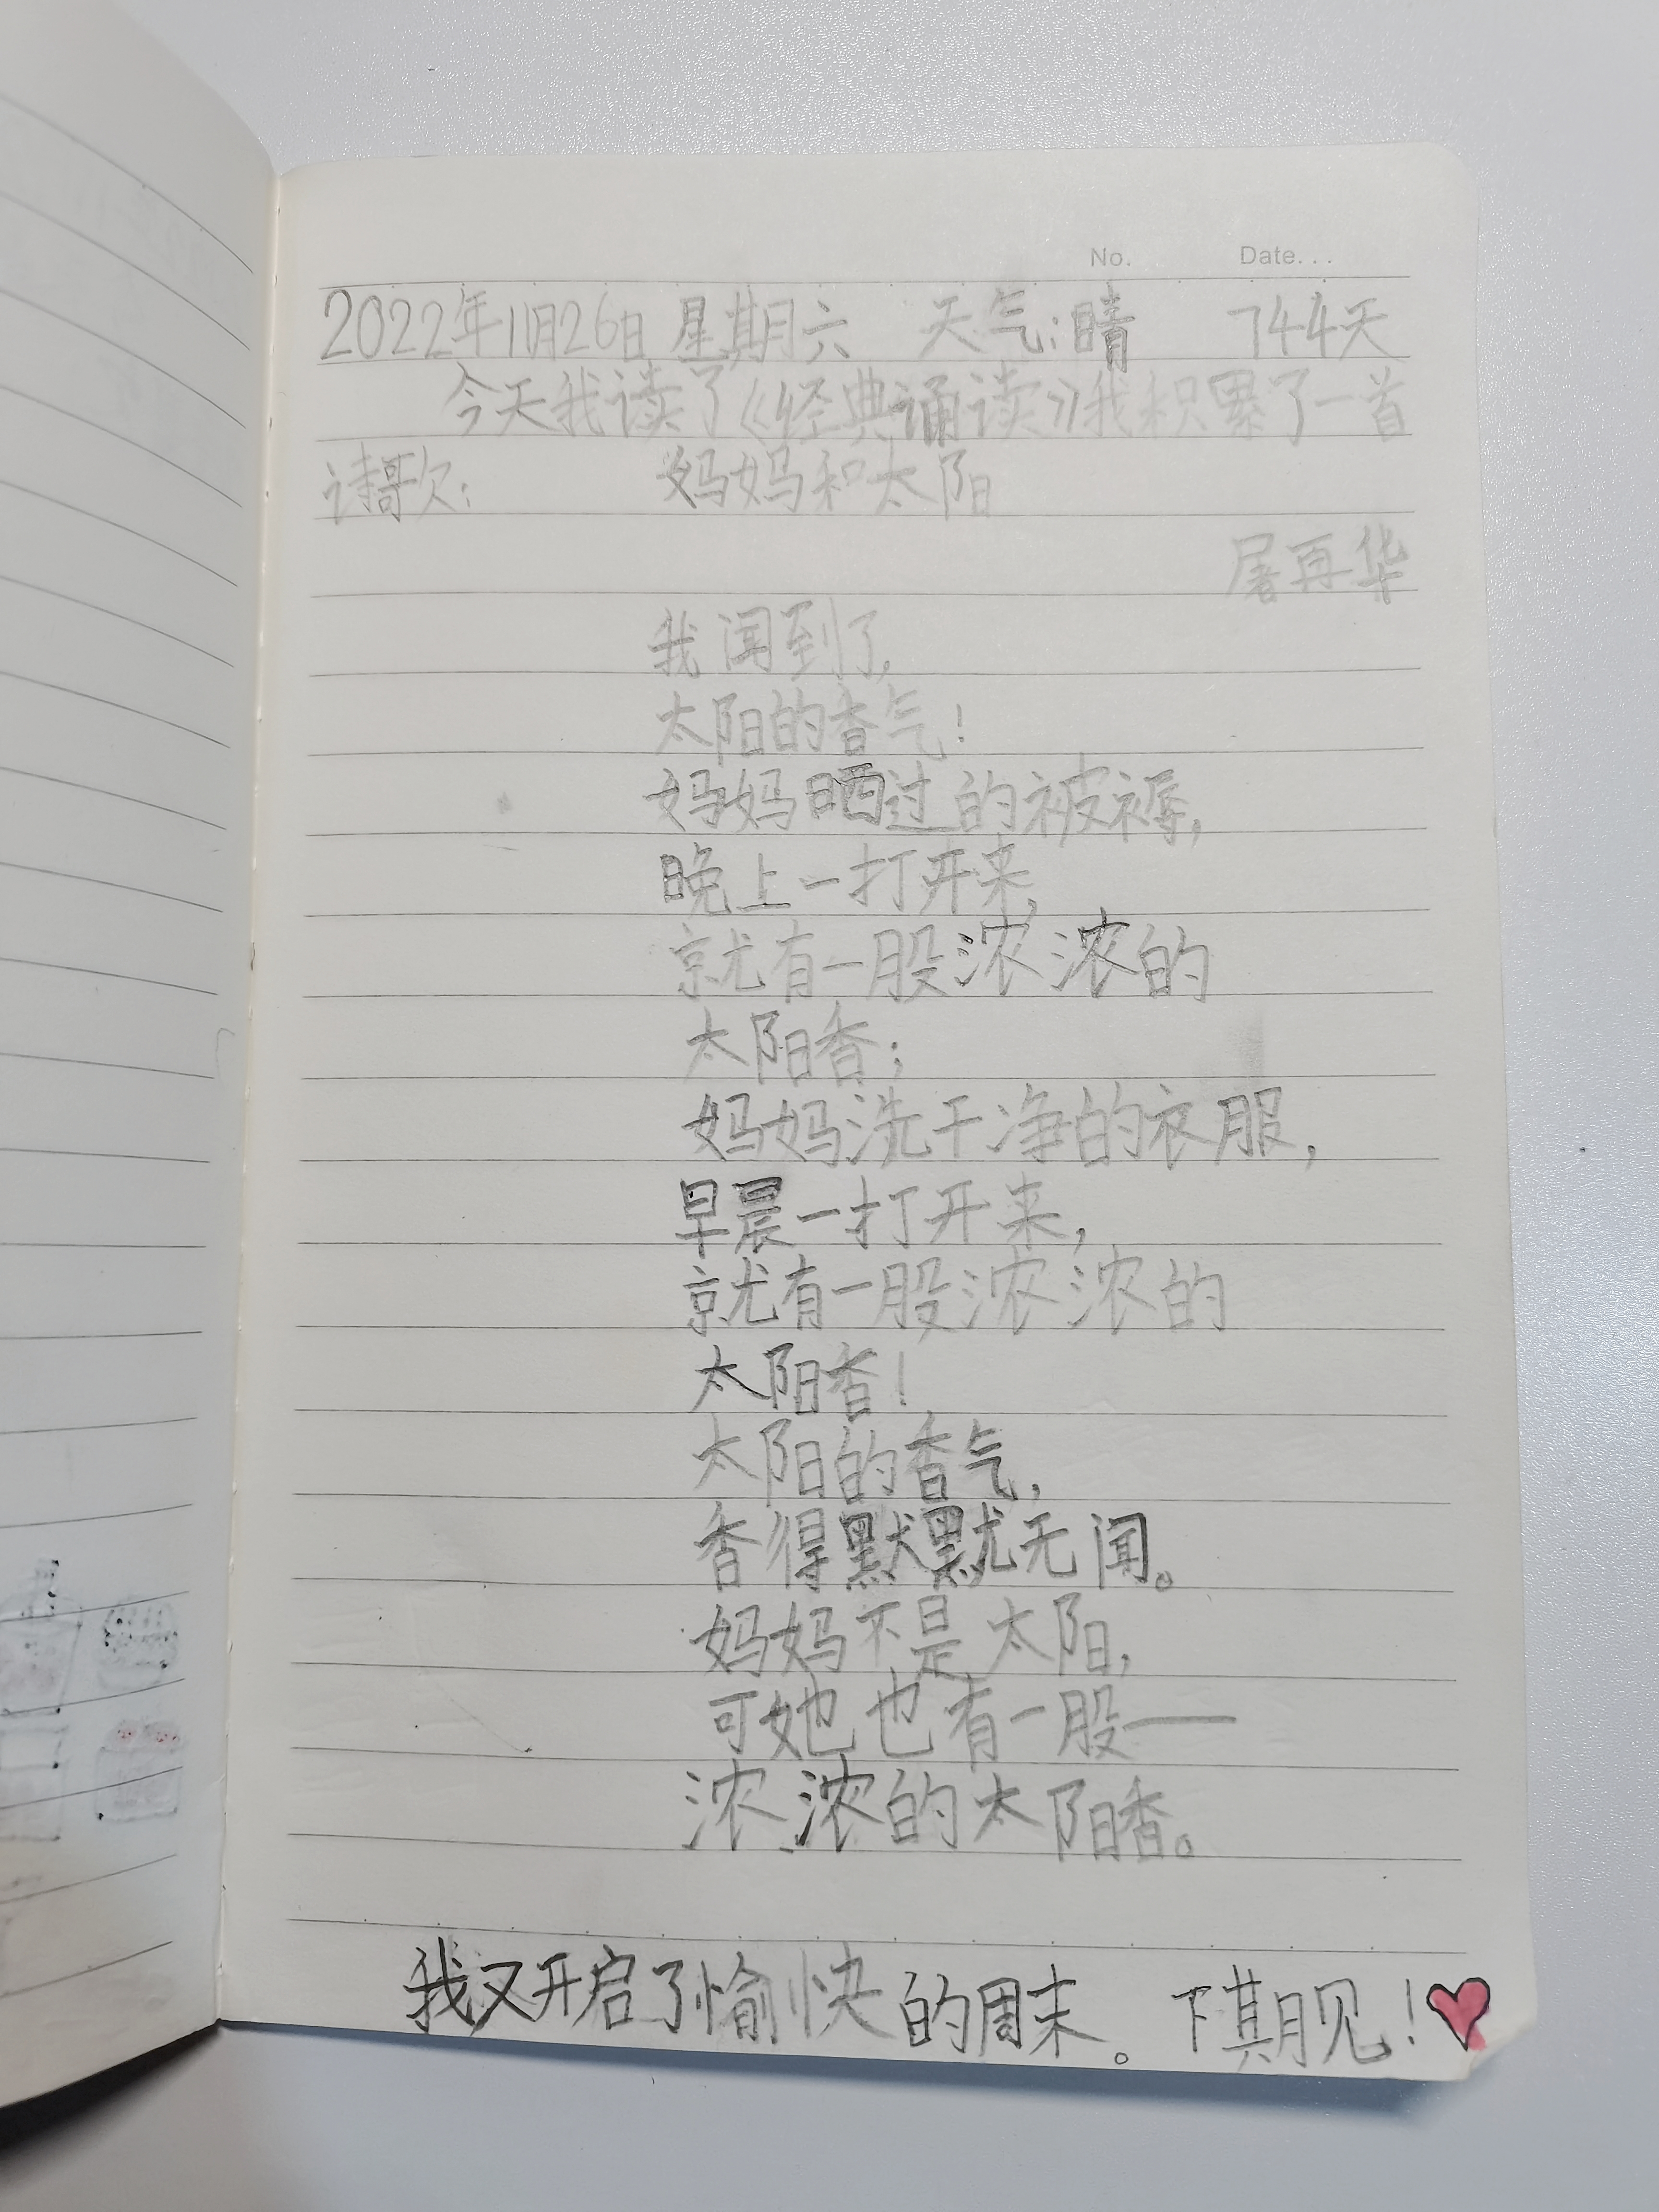 No. Date...
2022年11月26日 星期六 天气:晴 744天
今天我读了《经典诵读》我积累了一首
诗歌: 妈妈和太阳
屠再华
我闻到了,
太阳的香气!
妈妈晒过的被褥,
晚上一打开来,
就有一股浓浓的
太阳香;
妈妈洗干净的衣服,
早晨一打开来,
就有一股浓浓的
太阳香!
太阳的香气,
香得默默无闻。
妈妈不是太阳,
可她也有一股——
浓浓的太阳香。
我又开启了愉快的周末。下期见!